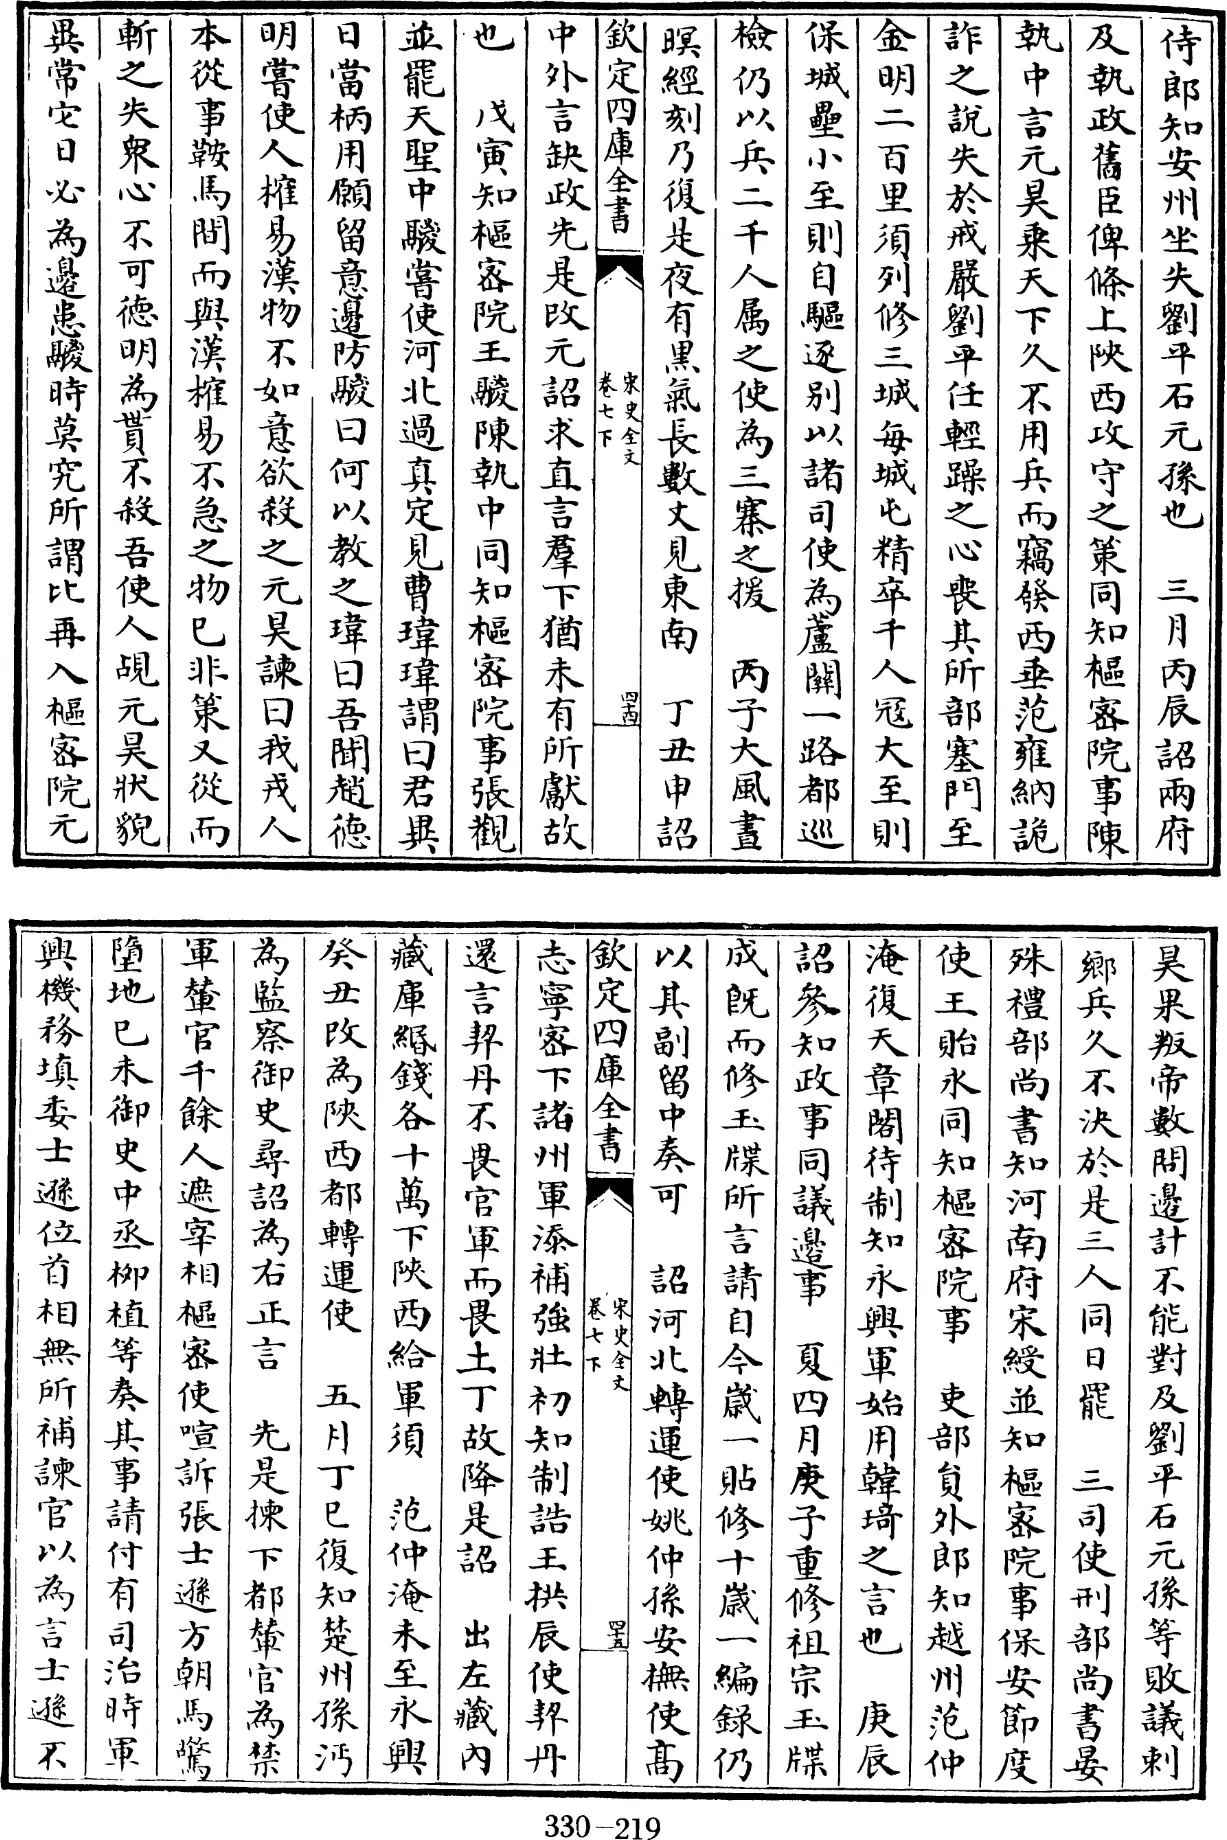 侍郎知安州坐失劉平石元孫也　三月丙辰詔兩府
及執政舊臣俾條上陜西攻守之策同知樞密院事陳
執中言元昊乗天下久不用兵而竊發西垂范雍納詭
詐之說失於戒嚴劉平任輕躁之心喪其所部塞門至
金明二百里須列修三城每城屯精卒千人冦大至則
保城壘小至則自驅逐别以諸司使為蘆關一路都巡
檢仍以兵二千人属之使為三寨之援　丙子大風晝
暝經刻乃復是夜有黒氣長數丈見東南　丁丑申詔
欽定四庫全書
宋史全文
卷七下
四十四
中外言缺政先是改元詔求直言羣下猶未有所獻故
也　戊寅知樞密院王鬷陳執中同知樞密院事張觀
並罷天聖中鬷嘗使河北過真定見曹瑋瑋謂曰君異
日當柄用願留意邊防鬷曰何以教之瑋曰吾聞趙徳
明嘗使人榷易漢物不如意欲殺之元昊諫曰我戎人
本從事鞍馬間而與漢榷易不急之物已非策又從而
斬之失衆心不可徳明為貰不殺吾使人覘元昊狀貌
異常它日必為邊患鬷時莫究所謂比再入樞密院元
昊果叛帝數問邊計不能對及劉平石元孫等敗議刺
鄉兵久不決於是三人同日罷　三司使刑部尚書晏
殊禮部尚書知河南府宋綬並知樞密院事保安節度
使王貽永同知樞密院事　吏部員外郎知越州范仲
淹復天章閣待制知永興軍始用韓琦之言也　庚辰
詔參知政事同議邊事　夏四月庚子重修祖宗玉牒
成既而修玉牒所言請自今歳一貼修十歳一編録仍
以其副留中奏可　詔河北轉運使姚仲孫安撫使髙
欽定四庫全書
宋史全文
卷七下
四十五
志寧密下諸州軍添補強壯初知制誥王拱辰使契丹
還言契丹不畏官軍而畏土丁故降是詔　出左藏内
藏庫緡錢各十萬下陜西給軍須　范仲淹未至永興
癸丑改為陜西都轉運使　五月丁巳復知楚州孫沔
為監察御史尋詔為右正言　先是揀下都輦官為禁
軍輦官千餘人遮宰相樞密使喧訴張士遜方朝馬驚
墮地已未御史中丞栁植等奏其事請付有司治時軍
興機務填委士遜位首相無所補諫官以為言士遜不
330-219